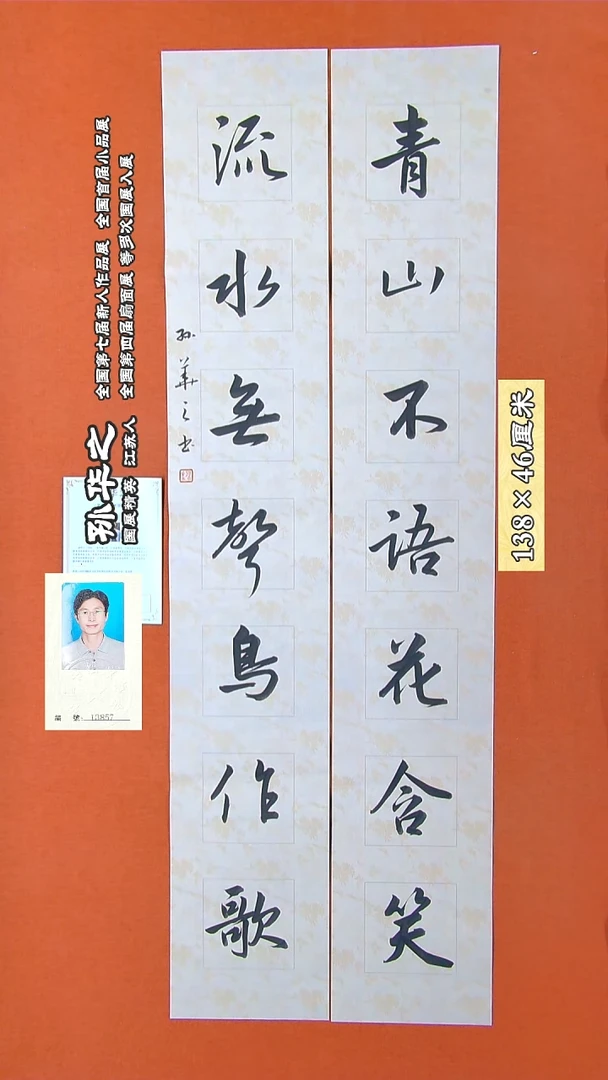 青山不语花含笑
流水無聲鳥作歌
孙華之书
138×46厘米
孙华之
国展精英 江苏人
全国第七届新人作品展 全国首届小品展
全国第四届扇面展 等多次国展入展
編 號: 13857